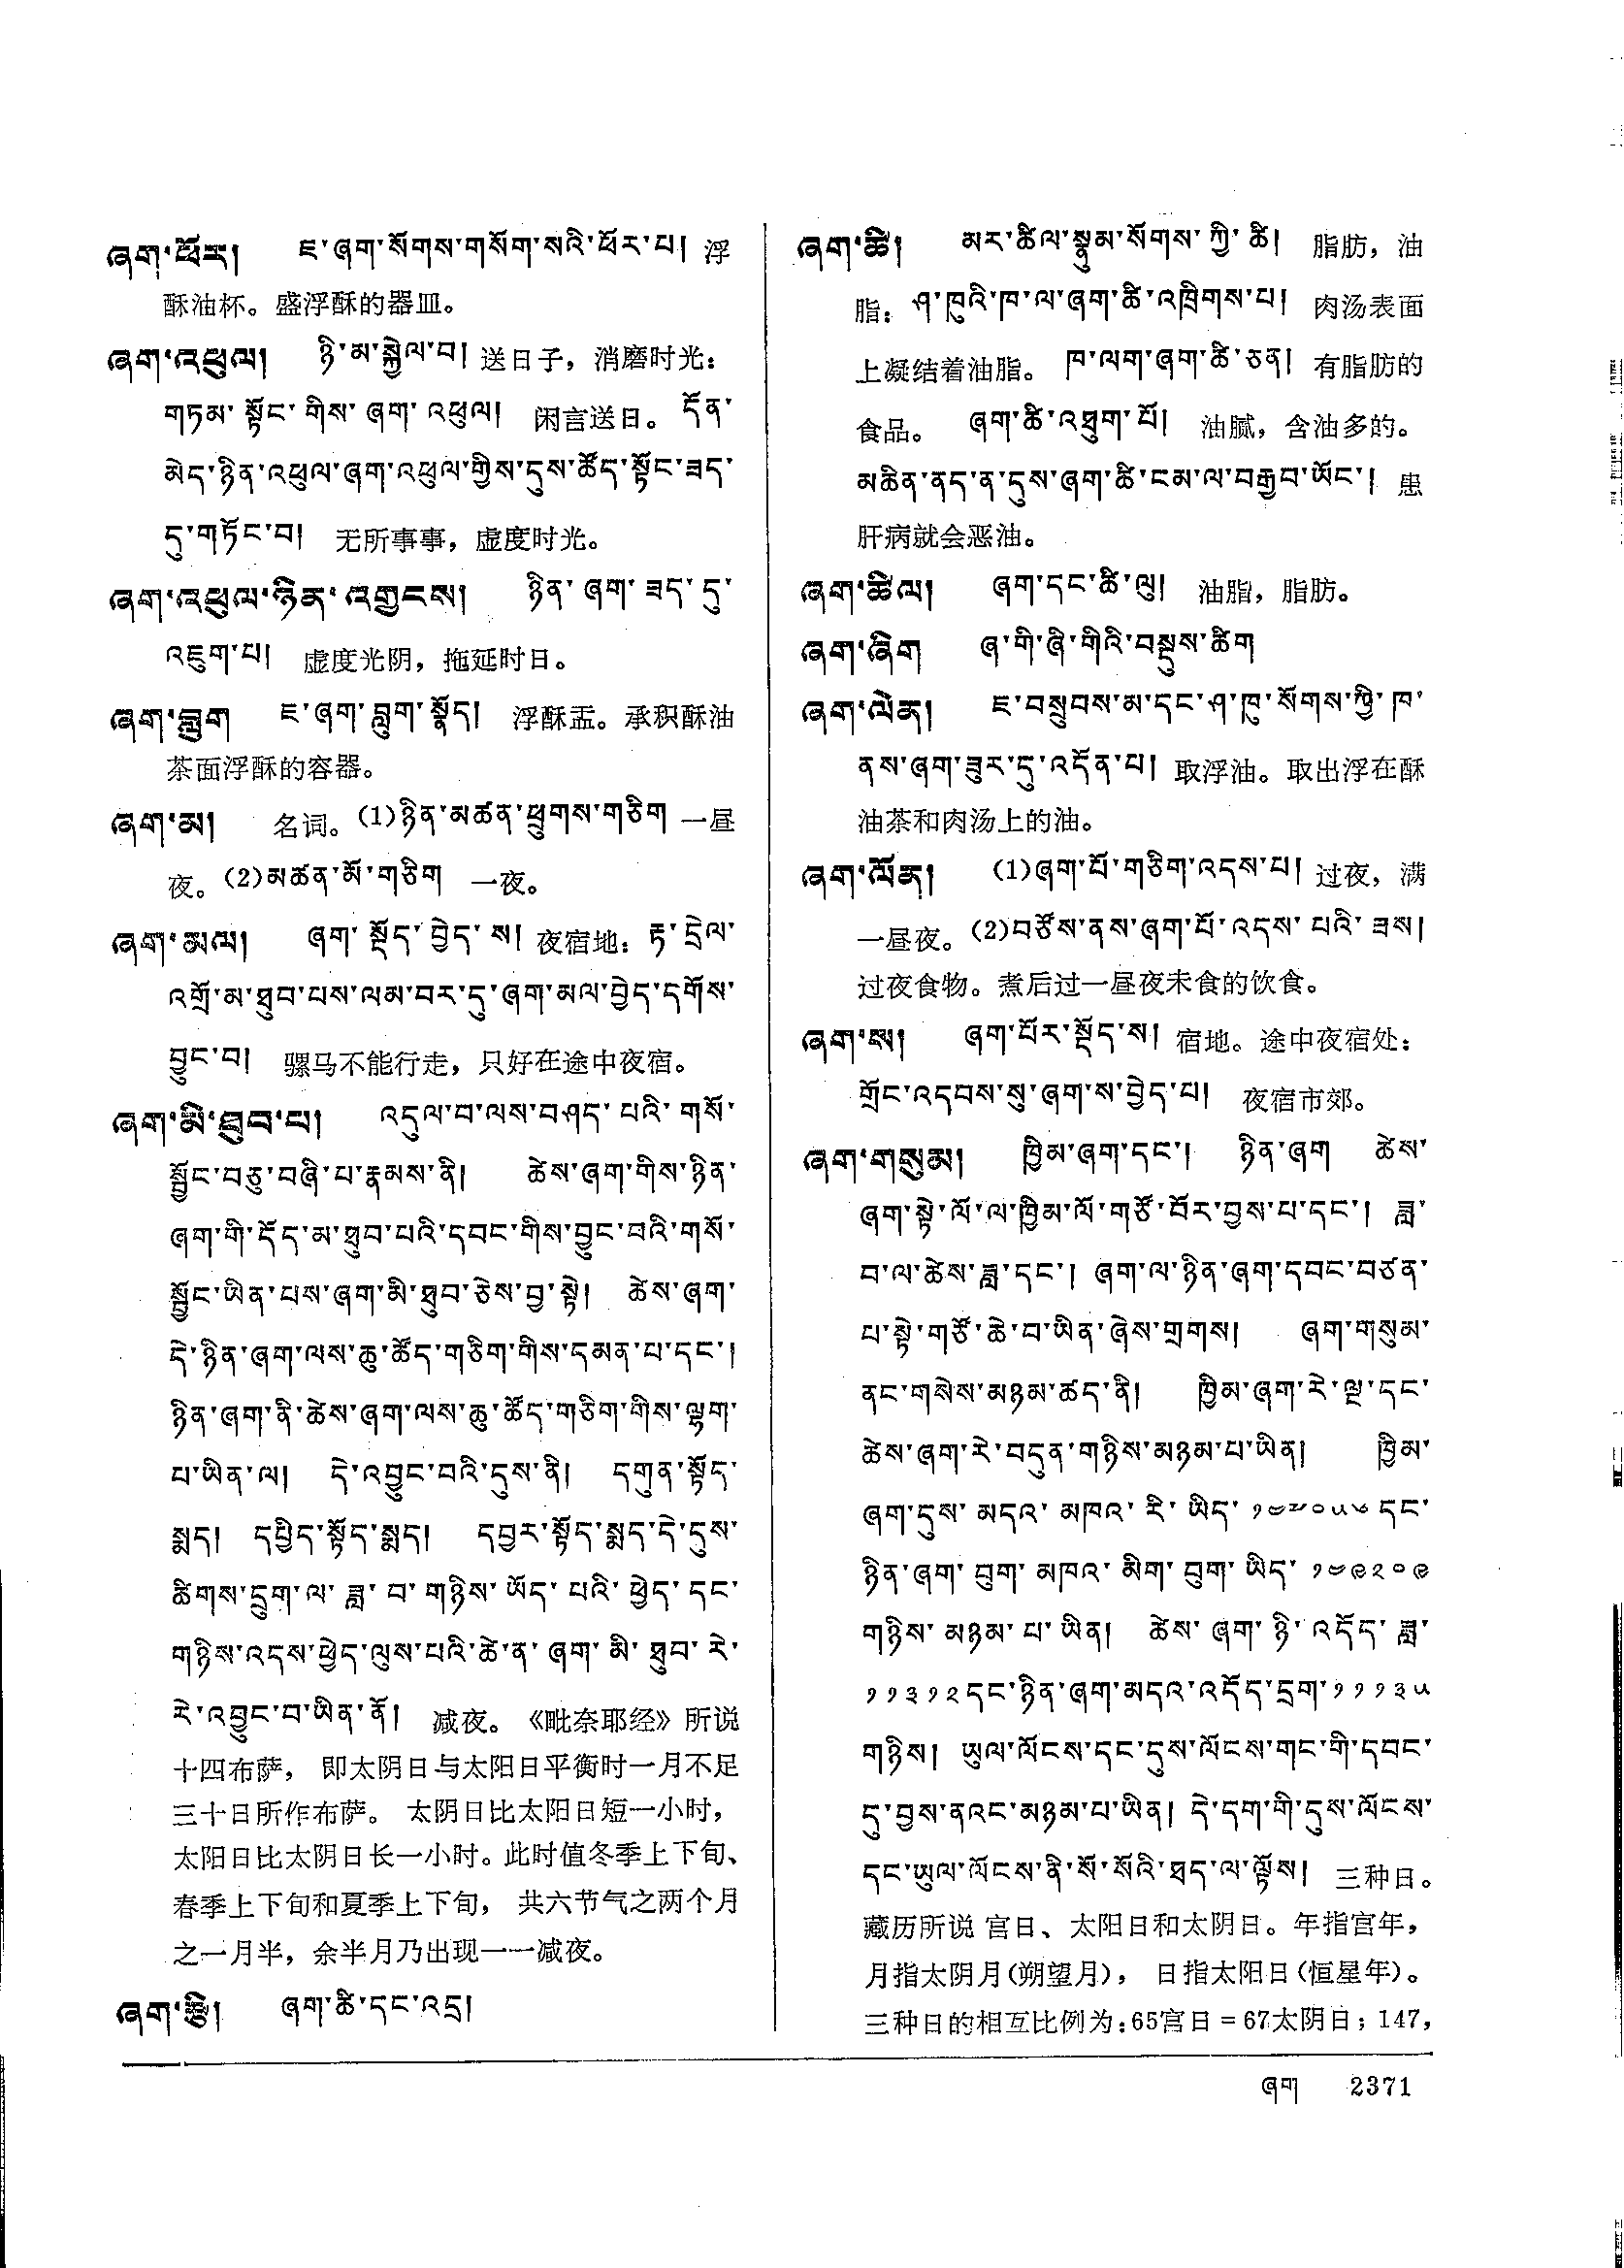 ཞག་ཕོར། ཇ་ཞག་སོགས་གསོག་སའི་ཕོར་པ། 浮
酥油杯。盛浮酥的器皿。
ཞག་འཕུལ། ཉི་མ་སྐྱེལ་བ། 送日子，消磨时光：
གཏམ་སྟོང་གིས་ཞག་འཕུལ། 闲言送日。དོན་
མེད་ཉིན་འཕུལ་ཞག་འཕུལ་གྱིས་དུས་ཚོད་སྟོང་ཟད་
དུ་གཏོང་བ། 无所事事，虚度时光。
ཞག་འཕུལ་ཉིན་འགྱངས། ཉིན་ཞག་ཟད་དུ་
འཇུག་པ། 虚度光阴，拖延时日。
ཞག་བླུག ཇ་ཞག་བླུག་སྣོད། 浮酥盂。承积酥油
茶面浮酥的容器。
ཞག་མ། 名词。(1)ཉིན་མཚན་ཕྲུགས་གཅིག 一昼
夜。(2)མཚན་མོ་གཅིག 一夜。
ཞག་མལ། ཞག་སྡོད་བྱེད་ས། 夜宿地：རྟ་དྲེལ་
འགྲོ་མ་ཐུབ་པས་ལམ་བར་དུ་ཞག་མལ་བྱེད་དགོས་
བྱུང་བ། 骡马不能行走，只好在途中夜宿。
ཞག་མི་ཐུབ་པ། འདུལ་བ་ལས་བཤད་པའི་གསོ་
སྦྱོང་བཅུ་བཞི་པ་རྣམས་ནི། ཚེས་ཞག་གིས་ཉིན་
ཞག་གི་དོད་མ་ཐུབ་པའི་དབང་གིས་བྱུང་བའི་གསོ་
སྦྱོང་ཡིན་པས་ཞག་མི་ཐུབ་ཅེས་བྱ་སྟེ། ཚེས་ཞག་
དེ་ཉིན་ཞག་ལས་ཆུ་ཚོད་གཅིག་གིས་དམན་པ་དང་།
ཉིན་ཞག་ནི་ཚེས་ཞག་ལས་ཆུ་ཚོད་གཅིག་གིས་ལྷག་
པ་ཡིན་ལ། དེ་འབྱུང་བའི་དུས་ནི། དགུན་སྟོད་
སྨད། དཔྱིད་སྟོད་སྨད། དབྱར་སྟོད་སྨད་དེ་དུས་
ཚིགས་དྲུག་ལ་ཟླ་བ་གཉིས་ཡོད་པའི་ཕྱེད་དང་
གཉིས་འདས་ཕྱེད་ལུས་པའི་ཚེ་ན་ཞག་མི་ཐུབ་རེ་
རེ་འབྱུང་བ་ཡིན་ནོ། 减夜。《毗奈耶经》所说
十四布萨，即太阴日与太阳日平衡时一月不足
三十日所作布萨。太阴日比太阳日短一小时，
太阳日比太阴日长一小时。此时值冬季上下旬、
春季上下旬和夏季上下旬，共六节气之两个月
之一月半，余半月乃出现一一减夜。
ཞག་རྩི། ཞག་ཚི་དང་འདྲ།
ཞག་ཚི། མར་ཚིལ་སྣུམ་སོགས་ཀྱི་ཚི། 脂肪，油
脂：ཤ་ཁུའི་ཁ་ལ་ཞག་ཚི་འཁྲིགས་པ། 肉汤表面
上凝结着油脂。ཁ་ལག་ཞག་ཚི་ཅན། 有脂肪的
食品。ཞག་ཚི་འཐུག་པོ། 油腻，含油多的。
མཆིན་ནད་ན་དུས་ཞག་ཚི་ངམ་ལ་བརྒྱབ་ཡོང་། 患
肝病就会恶油。
ཞག་ཚིལ། ཞག་དང་ཚི་ལུ། 油脂，脂肪。
ཞག་ཞིག ཞ་གི་ཞི་གིའི་བསྡུས་ཚིག
ཞག་ལེན། ཇ་བསྲུབས་མ་དང་ཤ་ཁུ་སོགས་ཀྱི་ཁ་
ནས་ཞག་ཟུར་དུ་འདོན་པ། 取浮油。取出浮在酥
油茶和肉汤上的油。
ཞག་ལོན། (1)ཞག་པོ་གཅིག་འདས་པ། 过夜，满
一昼夜。(2)བཙོས་ནས་ཞག་པོ་འདས་པའི་ཟས།
过夜食物。煮后过一昼夜未食的饮食。
ཞག་ས། ཞག་པོར་སྡོད་ས། 宿地。途中夜宿处：
གྲོང་འདབས་སུ་ཞག་ས་བྱེད་པ། 夜宿市郊。
ཞག་གསུམ། ཁྱིམ་ཞག་དང་། ཉིན་ཞག ཚེས་
ཞག་སྟེ་ལོ་ལ་ཁྱིམ་ལོ་གཙོ་བོར་བྱས་པ་དང་། ཟླ་
བ་ལ་ཚེས་ཟླ་དང་། ཞག་ལ་ཉིན་ཞག་དབང་བཙན་
པ་སྟེ་གཙོ་ཆེ་བ་ཡིན་ཞེས་གྲགས། ཞག་གསུམ་
ནང་གསེས་མཉམ་ཚད་ནི། ཁྱིམ་ཞག་རེ་ལྔ་དང་
ཚེས་ཞག་རེ་བདུན་གཉིས་མཉམ་པ་ཡིན། ཁྱིམ་
ཞག་དུས་མདའ་མཁའ་རི་ཡིད་༡༧༧༠༥༦དང་
ཉིན་ཞག་བུག་མཁའ་མིག་བུག་ཡིད་༡༧༩༢༠༩
གཉིས་མཉམ་པ་ཡིན། ཚེས་ཞག་ཉི་འདོད་ཟླ་
༡༡༣༡༢དང་ཉིན་ཞག་མདའ་འདོད་དྲག་༡༡༡༣༥
གཉིས། ཡུལ་ལོངས་དང་དུས་ལོངས་གང་གི་དབང་
དུ་བྱས་ནའང་མཉམ་པ་ཡིན། དེ་དག་གི་དུས་ལོངས་
དང་ཡུལ་ལོངས་ནི་སོ་སོའི་ཐད་ལ་ལྟོས། 三种日。
藏历所说宫日、太阳日和太阴日。年指宫年，
月指太阴月(朔望月)，日指太阳日(恒星年)。
三种日的相互比例为：65宫日=67太阴日；147,
ཞག 2371